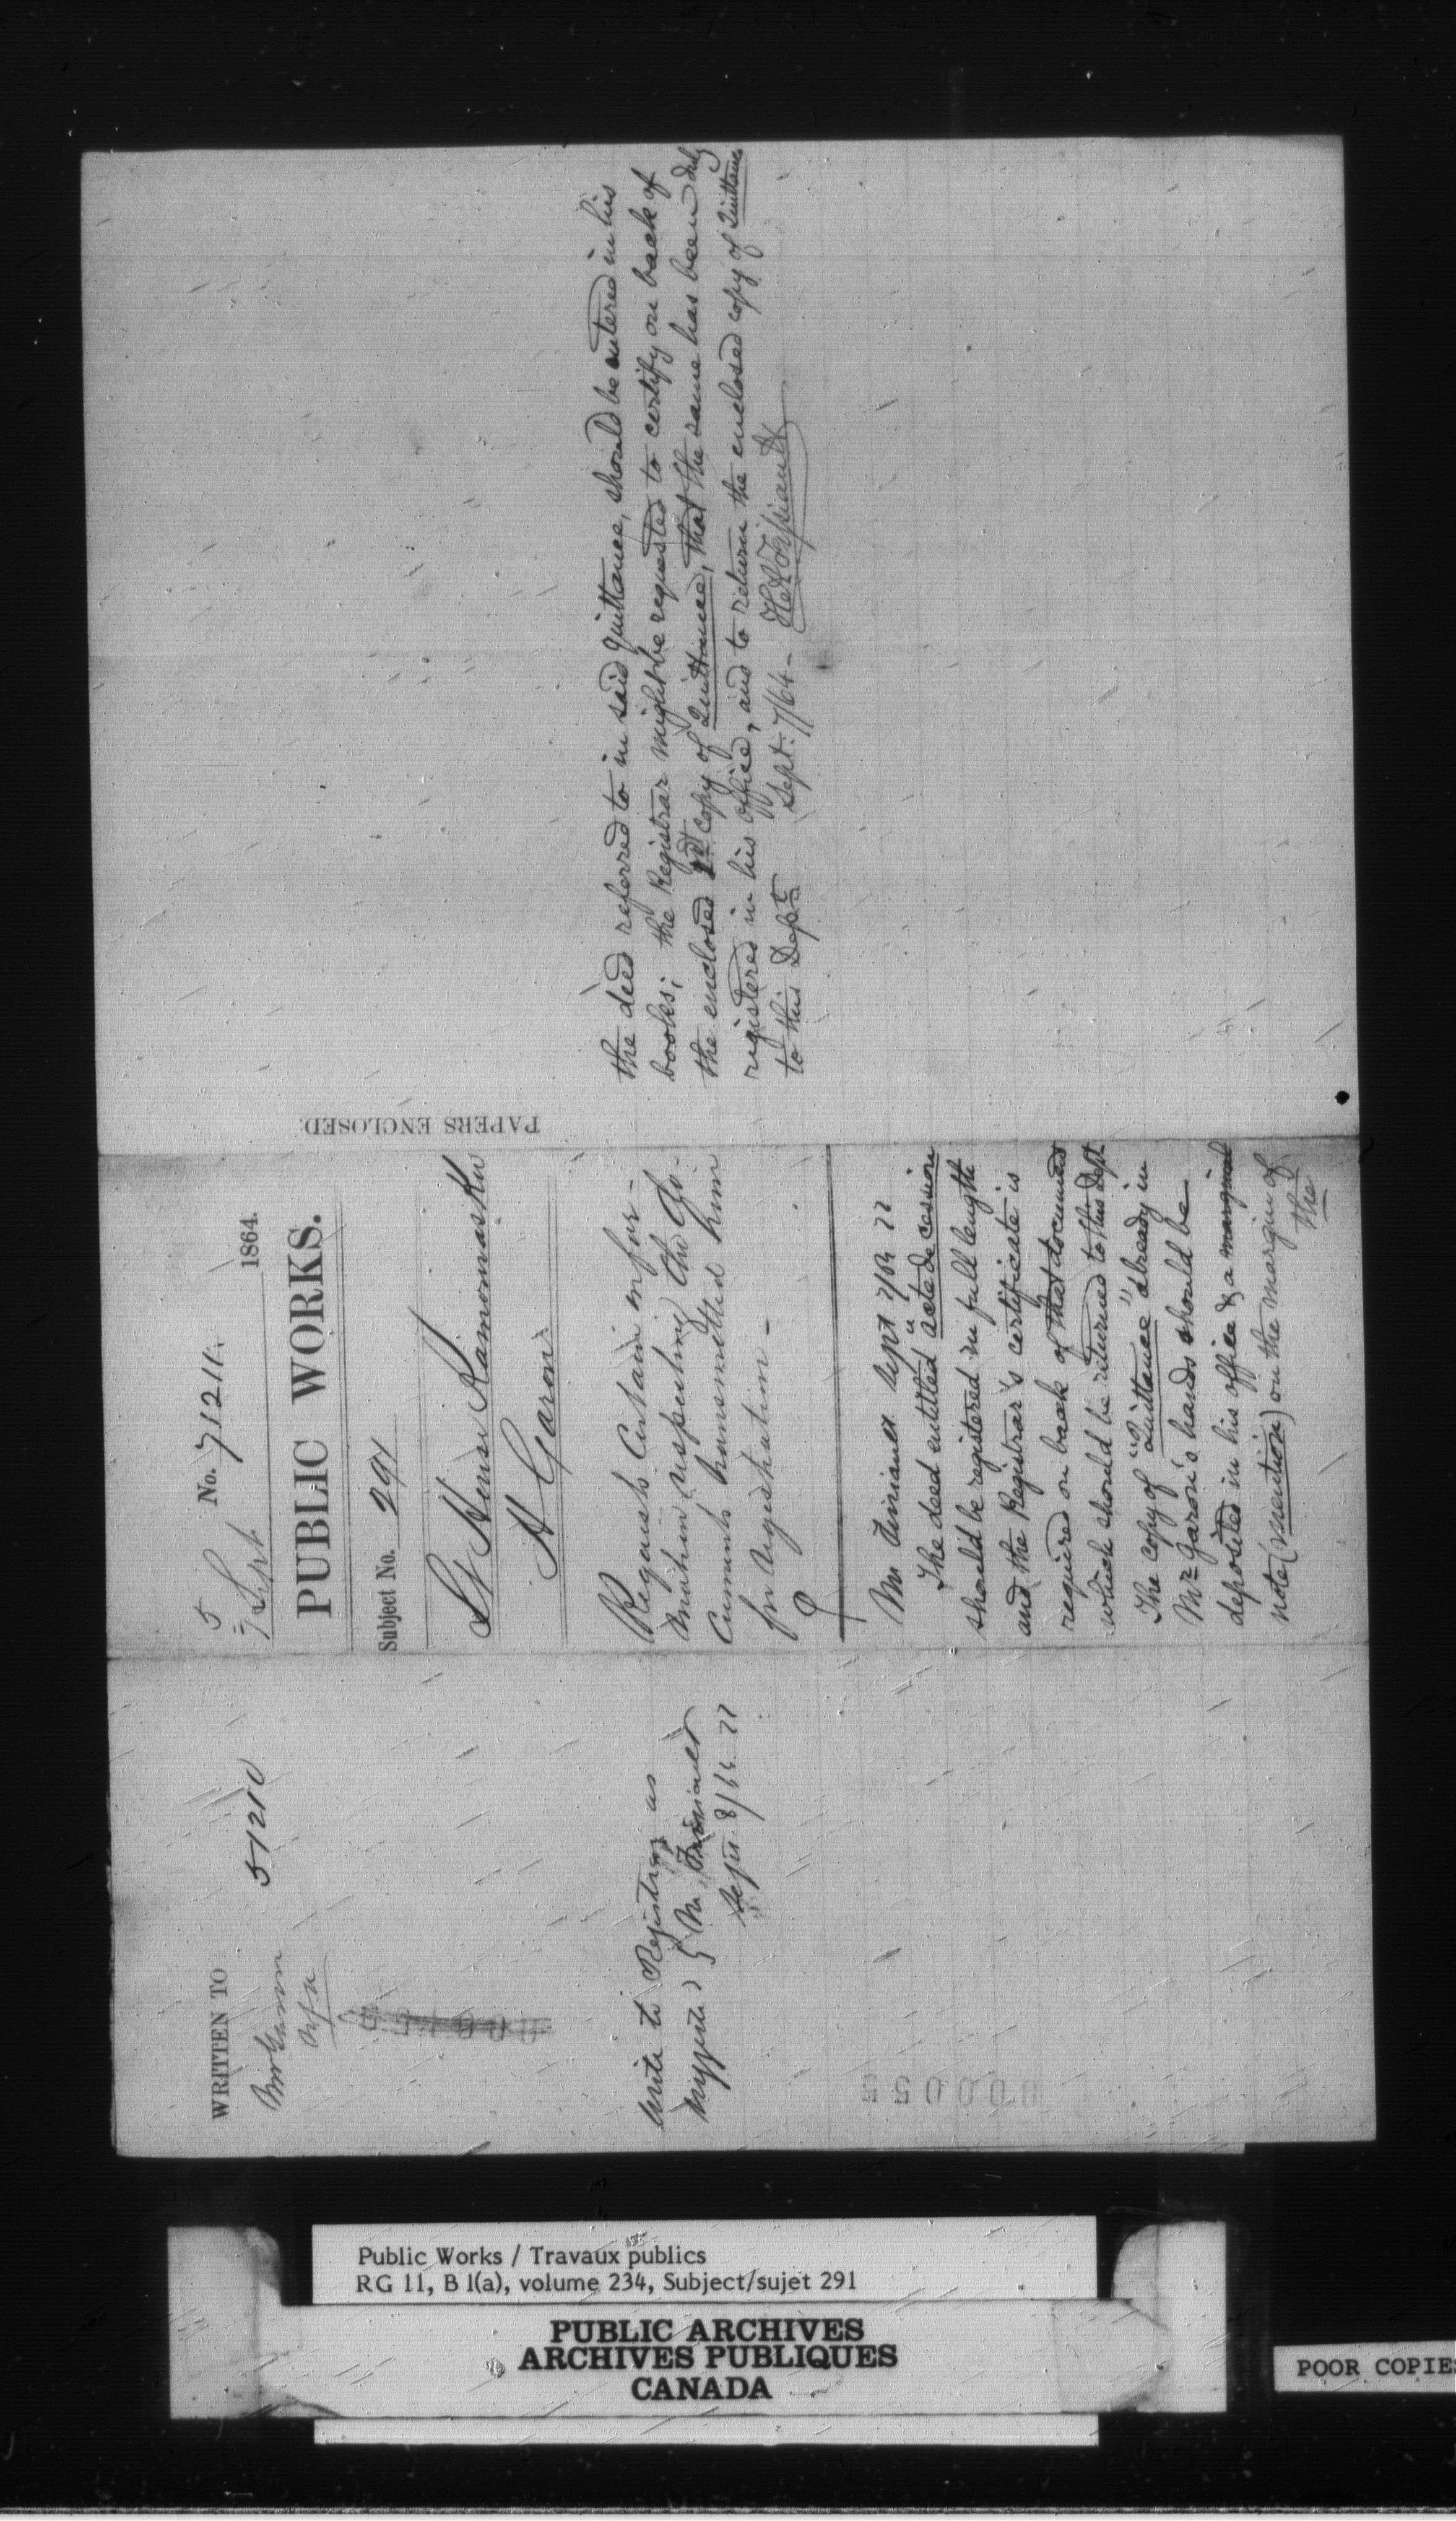 WRITTEN TO
51210
Write to Registrar as
Sept 8/64
5
7 Sept No. 71211. 1864.
PUBLIC WORKS.
Subject No. 291
St Denis Kamouraska
Garon
Requests Certain infor-
mation respecting the do-
cuments transmitted him
for registration -
Mr Sept 7/64
The deed entitled "acte de cession
should be registered in full length
and the Registrar's certificate is
required on back of that document
which should be returned to this Dept
The copy of "Quittance" already in
Mr Garon's hands should be
deposited in his office & a marginal
note (mention) on the margin of
the
PAPERS ENCLOSED.
the deed referred to in said quittance, should be entered in his
books; the Registrar might be requested to certify on back of
the enclosed copy of Quittance, that the same has been duly
registered in his office, and to return the enclosed copy of Quittance
to this Dept. Sept. 7/64 -
00055
Public Works / Travaux publics
RG 11, B 1(a), volume 234, Subject/sujet 291
PUBLIC ARCHIVES
ARCHIVES PUBLIQUES
CANADA
POOR COPIES